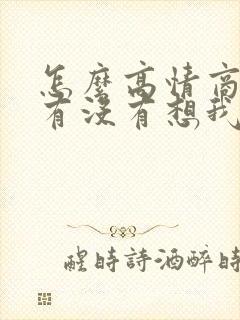 怎麼高情商
有沒有想我
醒時詩酒醉時